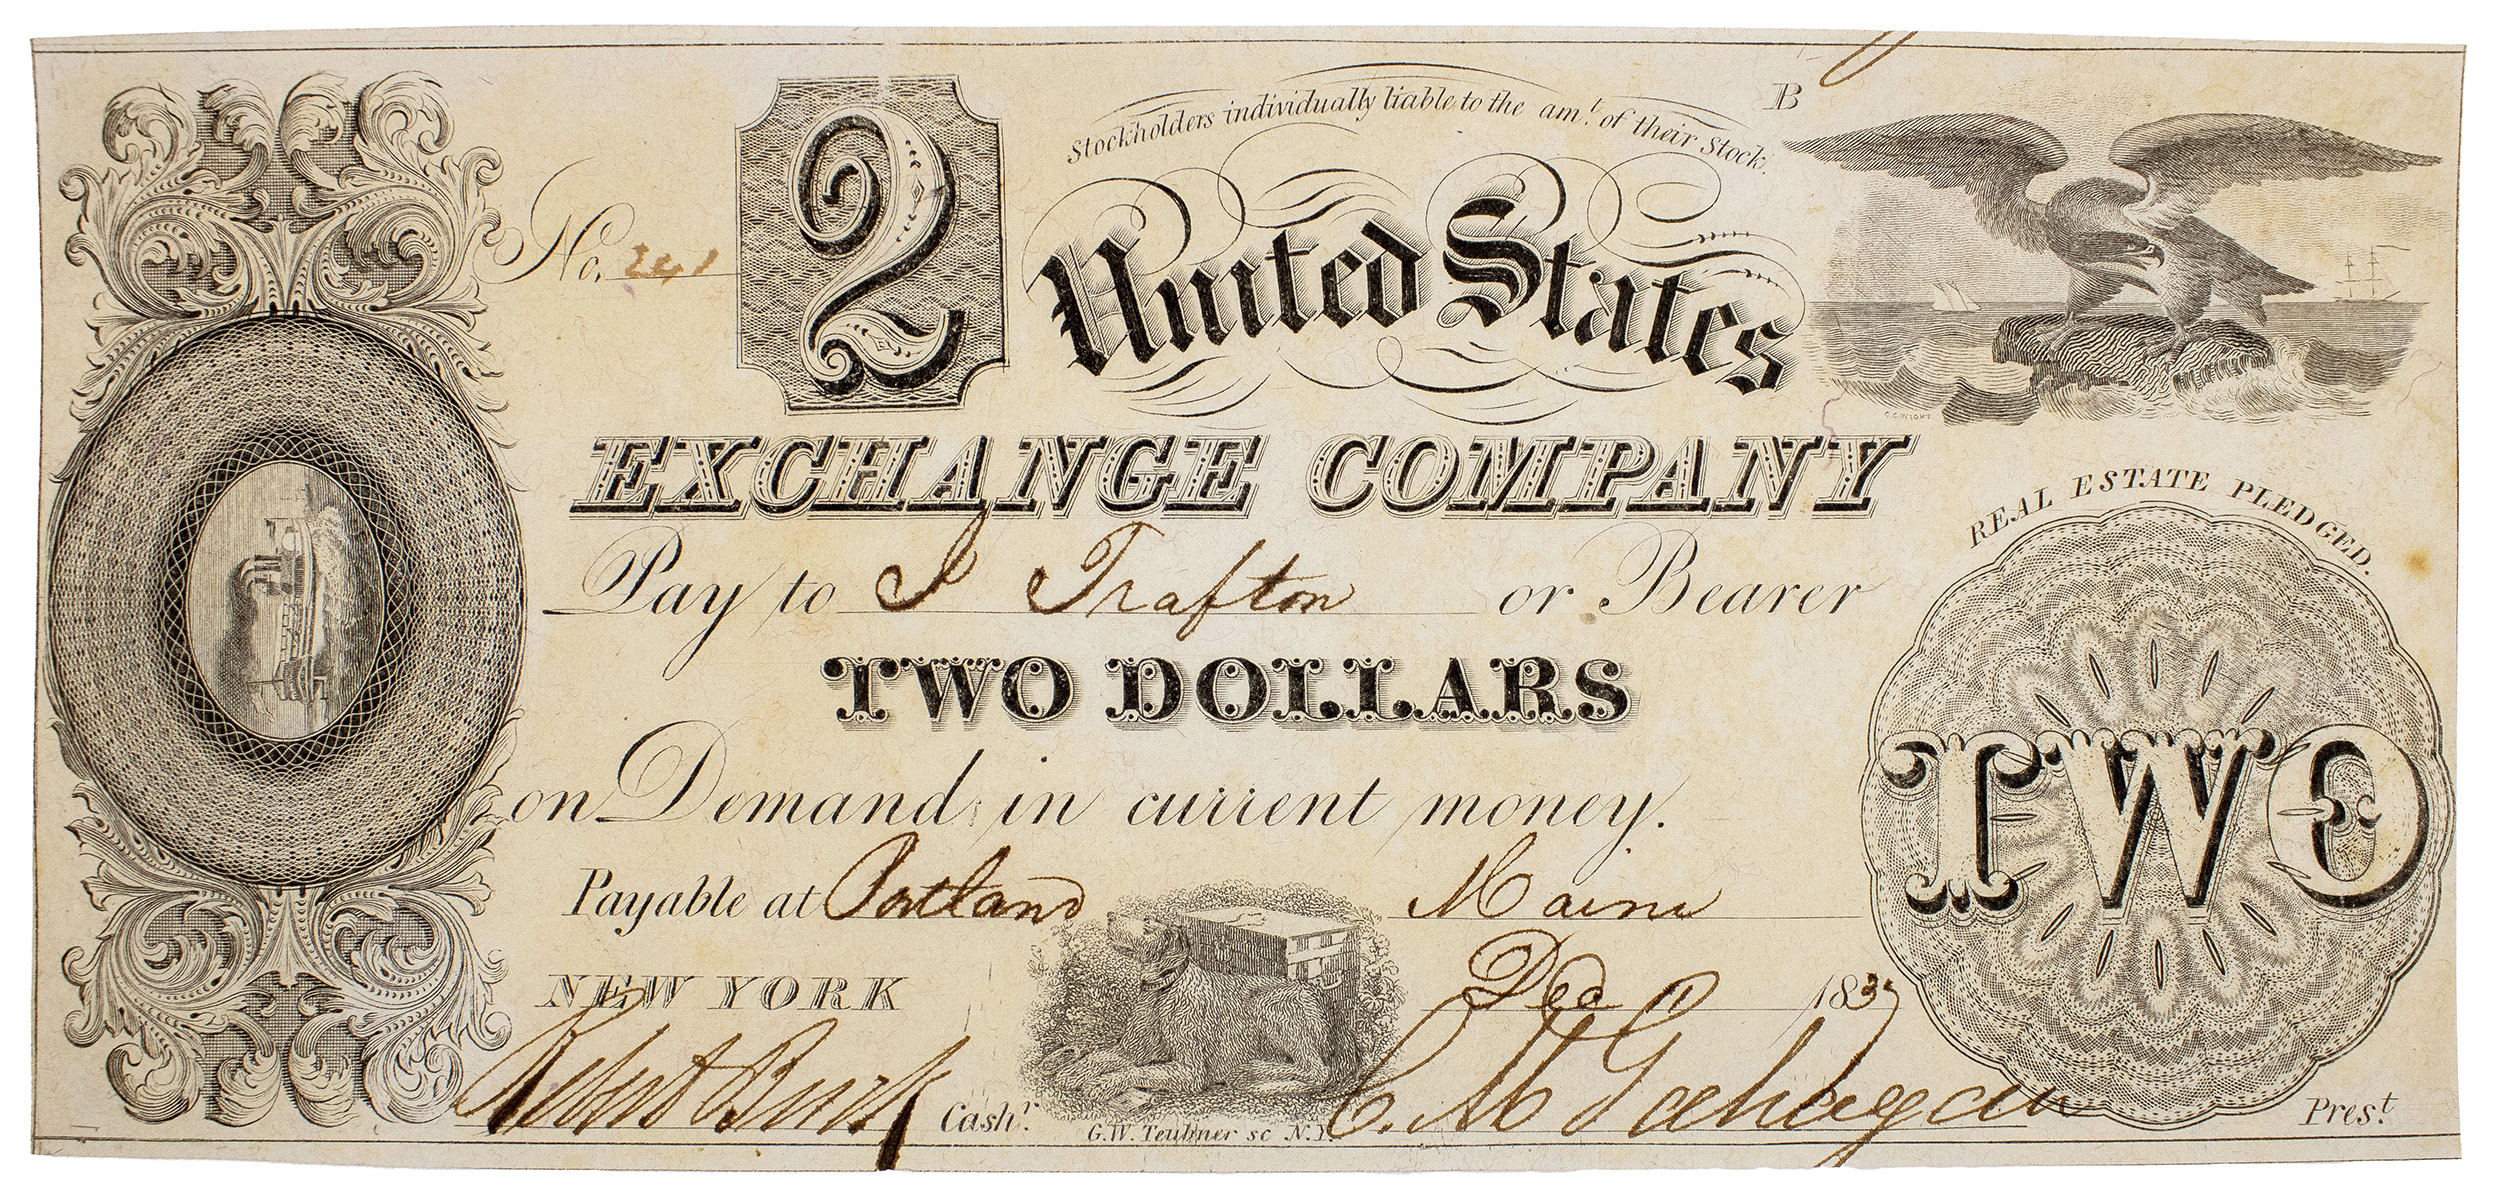 Stockholders individually liable to the am.t of their Stock.
B
No. 241
2
United States
EXCHANGE COMPANY
REAL ESTATE PLEDGED.
Pay to I Trafton or Bearer
TWO DOLLARS
TWO
on Demand in current money.
Payable at Portland Maine
NEW YORK Dec 1 1837
Cash.r
Pres.t
G.W. Teubner sc N.Y.
C.C. WIGHT